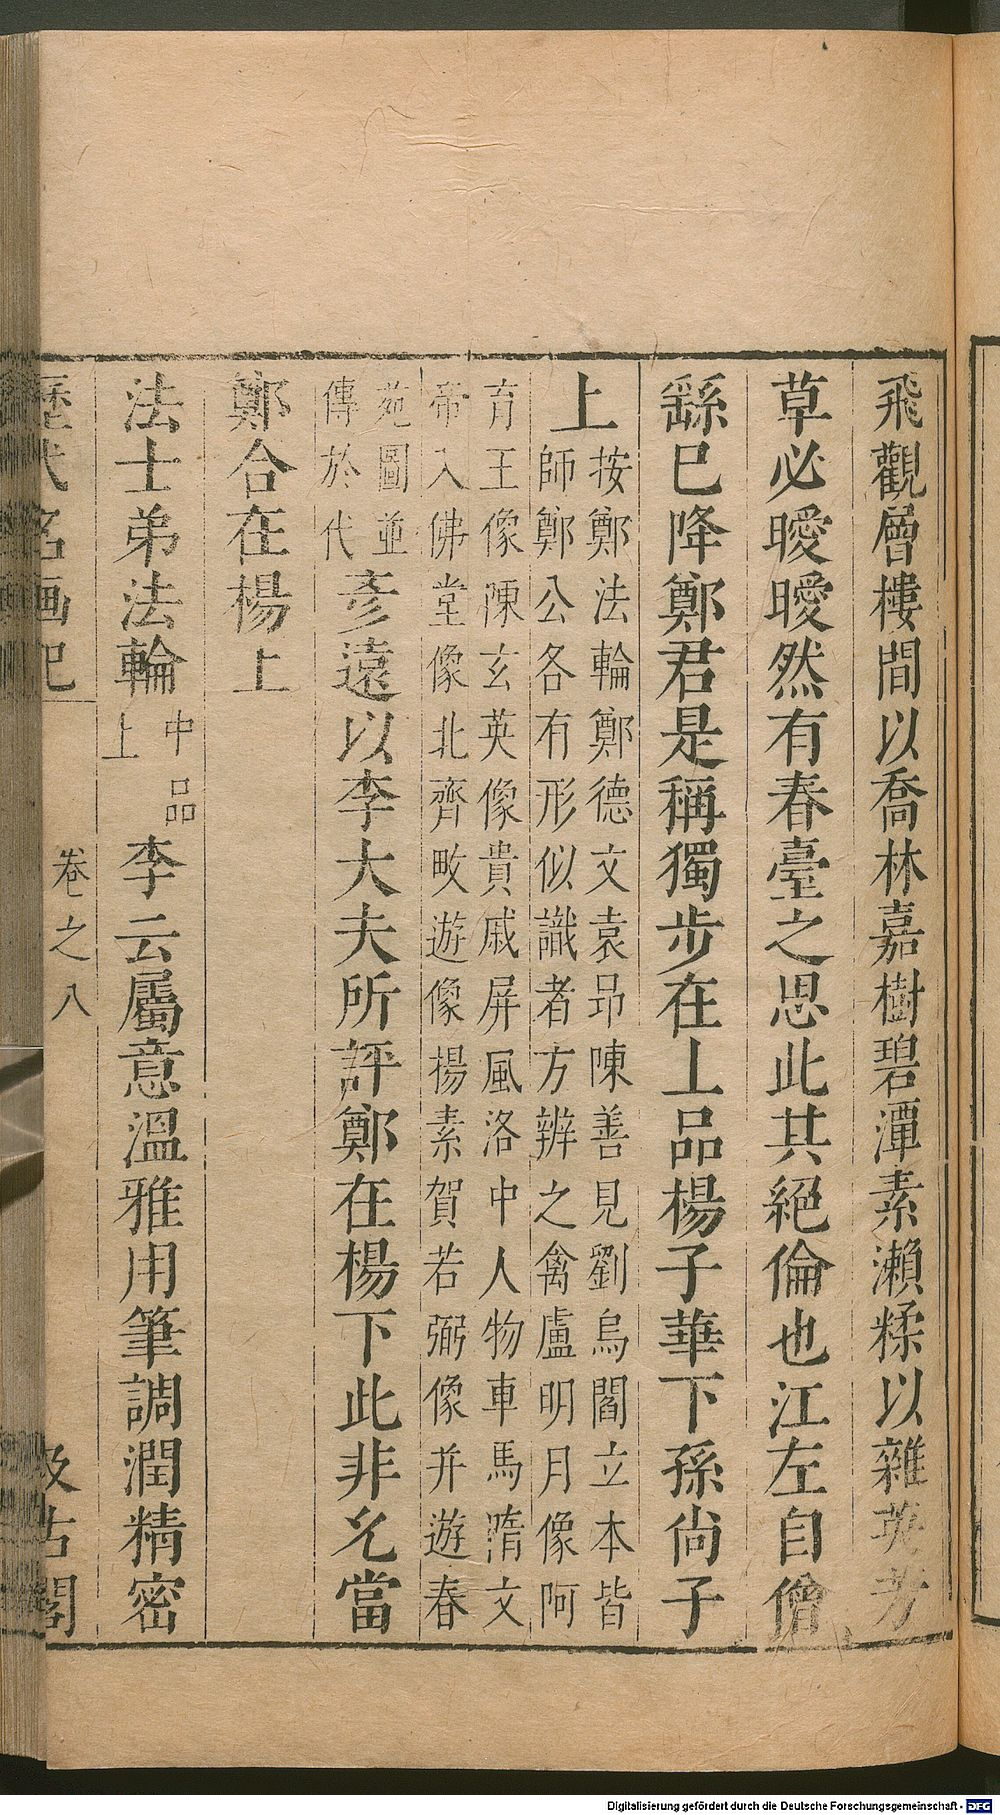 飛觀層樓間以喬林嘉樹碧潭素瀨糅以雜英芳
草必曖曖然有春臺之思此其絕倫也江左自僧
繇已降鄭君是稱獨步在上品楊子華下孫尚子
上
按鄭法輪鄭德文袁昂陳善見劉烏閻立本皆
師鄭公各有形似識者方辨之禽盧明月像阿
育王像陳玄英像貴戚屏風洛中人物車馬隋文
帝入佛堂像北齊畋遊像楊素賀若弼像并遊春
苑圖並
傳於代
彥遠以李大夫所評鄭在楊下此非允當
鄭合在楊上
法士弟法輪
中品
上
李云屬意溫雅用筆調潤精密
歷代名画記
卷之八
汲古閣
Digitalisierung gefördert durch die Deutsche Forschungsgemeinschaft - DFG